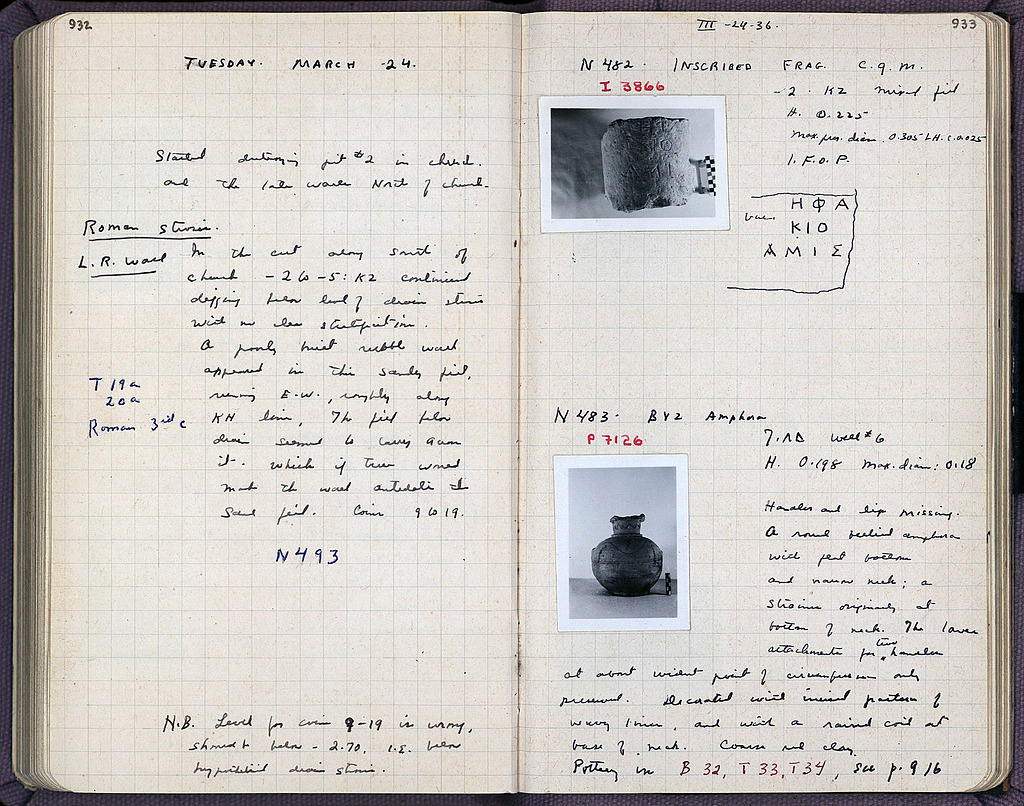 932
TUESDAY. MARCH -24.
Started destroying pit #2 in church.
and the late walls North of church.
Roman stoa.
L.R. wall
In the cut along south of
church -2 to -5: KZ continued
digging below level of drain
with no clear stratification.
A poorly built rubble wall
appeared in this sandy fill,
running E.W., roughly along
KH line, The fill below
drain seemed to carry down
it. which if true would
make the wall antedate the
sand fill. Coins 9 to 19.
T 19a
20a
Roman 3rd c
N493
N.B. Level for coins 9-19 is wrong,
should be below -2.70, i.e. below
hypothetical drain
III -24-36.
933
N 482. INSCRIBED FRAG. C.g.M.
I 3866
-2. KZ mixed fill
H. 0.225
Max. pres. diam. 0.305 LH. c. 0.025
1. F.O.P.
vac.
ΗΦΑ
ΚΙΟ
ΑΜΙΣ
N 483. BYZ Amphora
P 7126
7.ΛΔ well #6
H. 0.198 max. diam: 0.18
Handles and lip missing.
A round bellied amphora
with flat bottom
and narrow neck; a
strainer originally at
bottom of neck. The lower
attachments for two handles
at about widest point of circumference only
preserved. Decorated with incised pattern of
wavy lines, and with a raised coil at
base of neck. Coarse red clay.
Pottery in B 32, T 33, T34, see p. 916